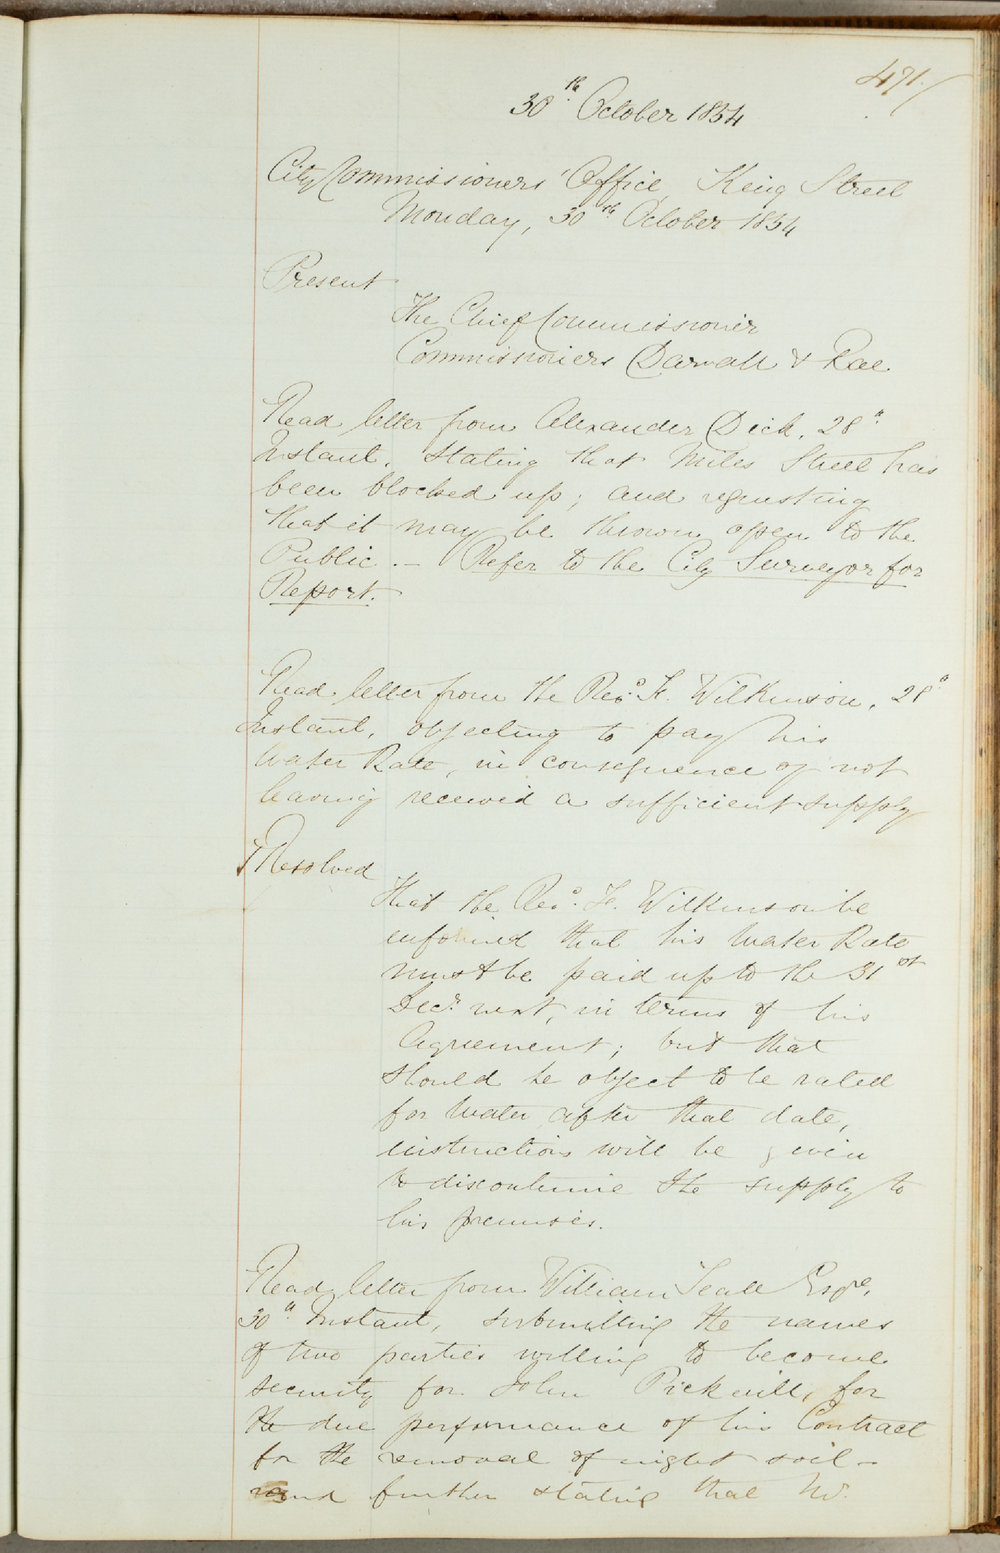 471.
30th October 1854
City Commissioners' Office King Street
Monday, 30th October 1854
Present
The Chief Commissioner
Commissioners Darvall & Rae
Read letter from Alexander Dick, 28th
Instant, stating that Miles Street has
been blocked up; and requesting
that it may be thrown open to the
Public. — Refer to the City Surveyor for
Report.
Read letter from the Revd. F. Wilkinson, 28th
Instant, objecting to pay his
Water Rate, in consequence of not
having received a sufficient supply
Resolved
That the Revd. F. Wilkinson be
informed that his Water Rate
must be paid up to the 31st
Decr. next, in terms of his
Agreement; but that
should he object to be rated
for Water after that date,
instructions will be given
to discontinue the supply to
his premises.
Read letter from William Teale Esqre,
30th Instant, submitting the names
of two parties willing to become
security for John Pickwill, for
the due performance of his Contract
for the removal of night soil —
and further stating that Mr.